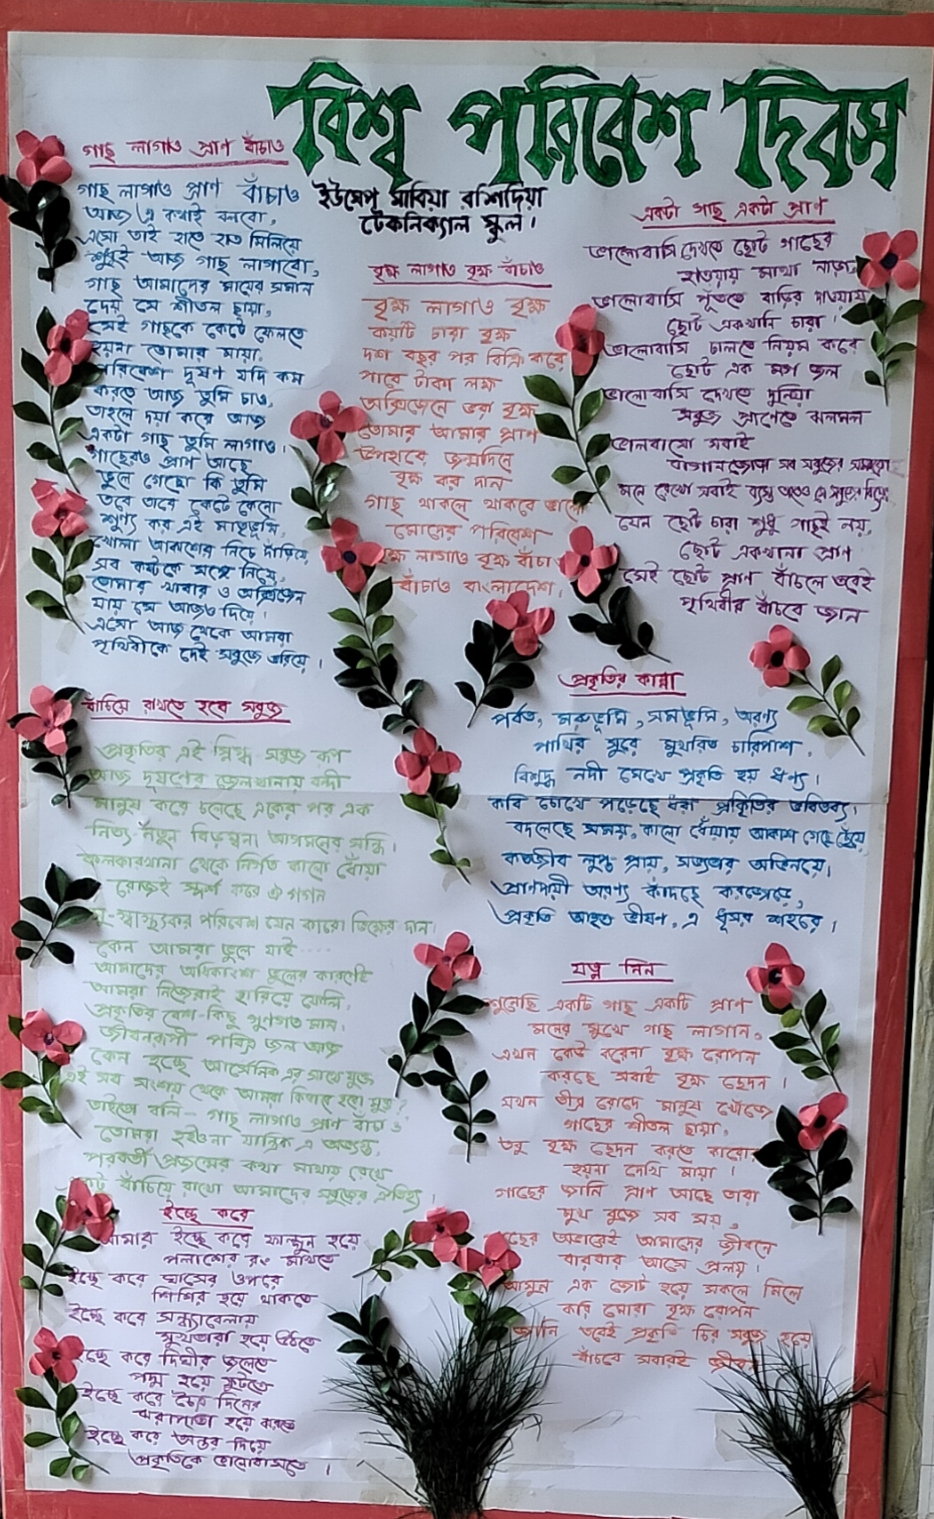 বিশ্ব পরিবেশ দিবস
ইউসেপ মাবিয়া রশিদিয়া
টেকনিক্যাল স্কুল।
গাছ লাগাও প্রাণ বাঁচাও
গাছ লাগাও প্রাণ বাঁচাও
আজ এ কথাই বলবো,
এসো ভাই হাতে হাত মিলিয়ে
শুধুই আজ গাছ লাগাবো,
গাছ আমাদের মায়ের সমান
দেয় সে শীতল ছায়া,
সেই গাছকে কেটে ফেলতে
হয়না তোমার মায়া,
পরিবেশ দূষণ যদি কম
করতে আজ তুমি চাও,
তাহলে দয়া করে আজ
একটা গাছ তুমি লাগাও।
গাছেরও প্রাণ আছে
ভুলে গেছো কি তুমি
তবে তারে কেটে কেনো
শূণ্য কর এই মাতৃভূমি,
খোলা আকাশের নিচে দাঁড়িয়ে
সব কষ্টকে সঙ্গে নিয়ে,
তোমার খাবার ও অক্সিজেন
যায় সে আজও দিয়ে।
এসো আজ থেকে আমরা
পৃথিবীকে দেই সবুজে ভরিয়ে।
বৃক্ষ লাগাও বৃক্ষ বাঁচাও
বৃক্ষ লাগাও বৃক্ষ
কয়টি চারা বৃক্ষ
দশ বছর পর বিক্রি করে
পাবে টাকা লক্ষ
অক্সিজেনে ভরা বৃক্ষ
তোমার আমার প্রাণ
উপহারে জন্মদিনে
বৃক্ষ কর দান
গাছ থাকলে থাকবে ভালো
মোদের পরিবেশ
বৃক্ষ লাগাও বৃক্ষ বাঁচাও
বাঁচাও বাংলাদেশ।
একটা গাছ একটা প্রাণ
ভালোবাসি দেখতে ছোট গাছের
হাওয়ায় মাথা নাড়া
ভালোবাসি পুঁততে বাড়ির দাওয়ায়
ছোট একখানি চারা।
ভালোবাসি ঢালতে নিয়ম করে
ছোট এক মগ জল
ভালোবাসি দেখতে দুনিয়া
সবুজ প্রাণেতে ঝলমল
ভালবাসো সবাই
বাগানজোড়া সব সবুজের
মনে রেখো সবাই
যেন ছোট চারা শুধু গাছই নয়,
ছোট একখানা প্রাণ
সেই ছোট প্রাণ বাঁচলে তবেই
পৃথিবীর বাঁচবে জান
প্রকৃতির কান্না
পর্বত, মরুভূমি, সমভূমি, অরণ্য
পাখির সুরে মুখরিত চারিপাশ,
বিশুদ্ধ নদী মেখে প্রকৃতি হয় ধণ্য।
কবি চোখে পড়েছে ধরা প্রকৃতির ভবিতব্য।
বদলেছে সময়, কালো ধোঁয়ায় আকাশ গেছে ছেঁয়ে
কতজীব লুপ্ত প্রায়, সভ্যতার অভিনয়ে,
প্রাণদায়ী অরণ্য কাঁদছে করজোড়ে,
প্রকৃতি আহত ভীষণ, এ ধূসর শহরে।
বাঁচিয়ে রাখতে হবে সবুজ
প্রকৃতির এই স্নিগ্ধ সবুজ রূপ
আজ দূষণের জেলখানায় বন্দী
মানুষ করে চলেছে একের পর এক
নিত্য-নতুন বিড়ম্বনা আগমনের সন্ধি।
কলকারখানা থেকে নির্গত কালো ধোঁয়া
রোজই স্পর্শ করে ঐ গগন
সু-স্বাস্থ্যকর পরিবেশ যেন কারো ভিক্ষের দান,
কেন আমরা ভুলে যাই····
আমাদের অধিকাংশ ভুলের কারণেই
আমরা নিজেরাই হারিয়ে ফেলি,
প্রকৃতির বেশ-কিছু গুণগত মান,
জীবনরূপী পবিত্র জল আজ
কেন হচ্ছে আর্সেনিক এর সাথে যুক্ত
এই সব সংশয় থেকে আমরা কিভাবে হবো মুক্ত?
তাইতো বলি- গাছ লাগাও প্রাণ বাঁচাও
তোমরা হইওনা যান্ত্রিক এ অভ্যস্ত,
পরবর্তী প্রজন্মের কথা মাথায় রেখে
বাঁচিয়ে রাখো আমাদের সবুজের ঐতিহ্য।
যত্ন নিন
শুনেছি একটি গাছ একটি প্রাণ
মনের সুখে গাছ লাগান,
এখন কেউ করেনা বৃক্ষ রোপন
করছে সবাই বৃক্ষ ছেদন।
যখন তীব্র রোদে মানুষ খোঁজে
গাছের শীতল ছায়া,
তবু বৃক্ষ ছেদন করতে কারো
হয়না দেখি মায়া।
গাছের জানি প্রাণ আছে তারা
মুখ বুজে সব সয়,
গাছের অভাবেই আমাদের জীবনে
বারবার আসে প্রলয়।
আসুন এক জোট হয়ে সকলে মিলে
করি মোরা বৃক্ষ রোপন
জানি তবেই প্রকৃতি চির সবুজ হয়ে
বাঁচবে সবারই জীবন
ইচ্ছে করে
আমার ইচ্ছে করে ফাল্গুন হয়ে
পলাশের রং মাখতে
ইচ্ছে করে ঘাসের ওপরে
শিশির হয়ে থাকতে
ইচ্ছে করে সন্ধ্যাবেলায়
শুখতারা হয়ে উঠতে
ইচ্ছে করে দিঘীর জলেতে
পদ্ম হয়ে ফুটতে
ইচ্ছে করে চৈত্র দিনের
ঝরাপাতা হয়ে ঝরতে
ইচ্ছে করে অন্তর দিয়ে
প্রকৃতিকে ভালোবাসতে।